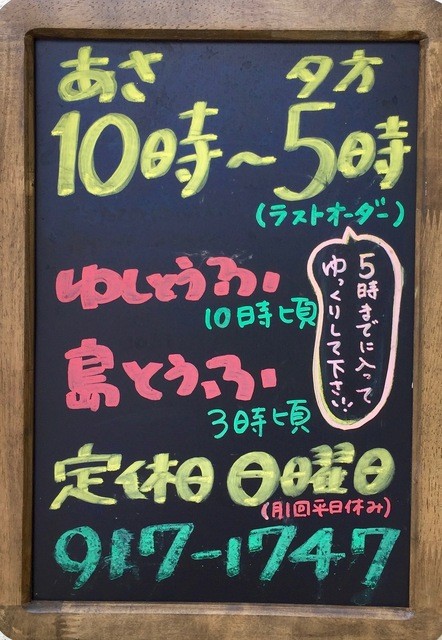 あさ 夕方
10時～5時
(ラストオーダー)
5時までに入って
ゆっくりして下さい!!
ゆしとうふ
10時頃
島とうふ
3時頃
定休日 日曜日
(月1回平日休み)
917-1747